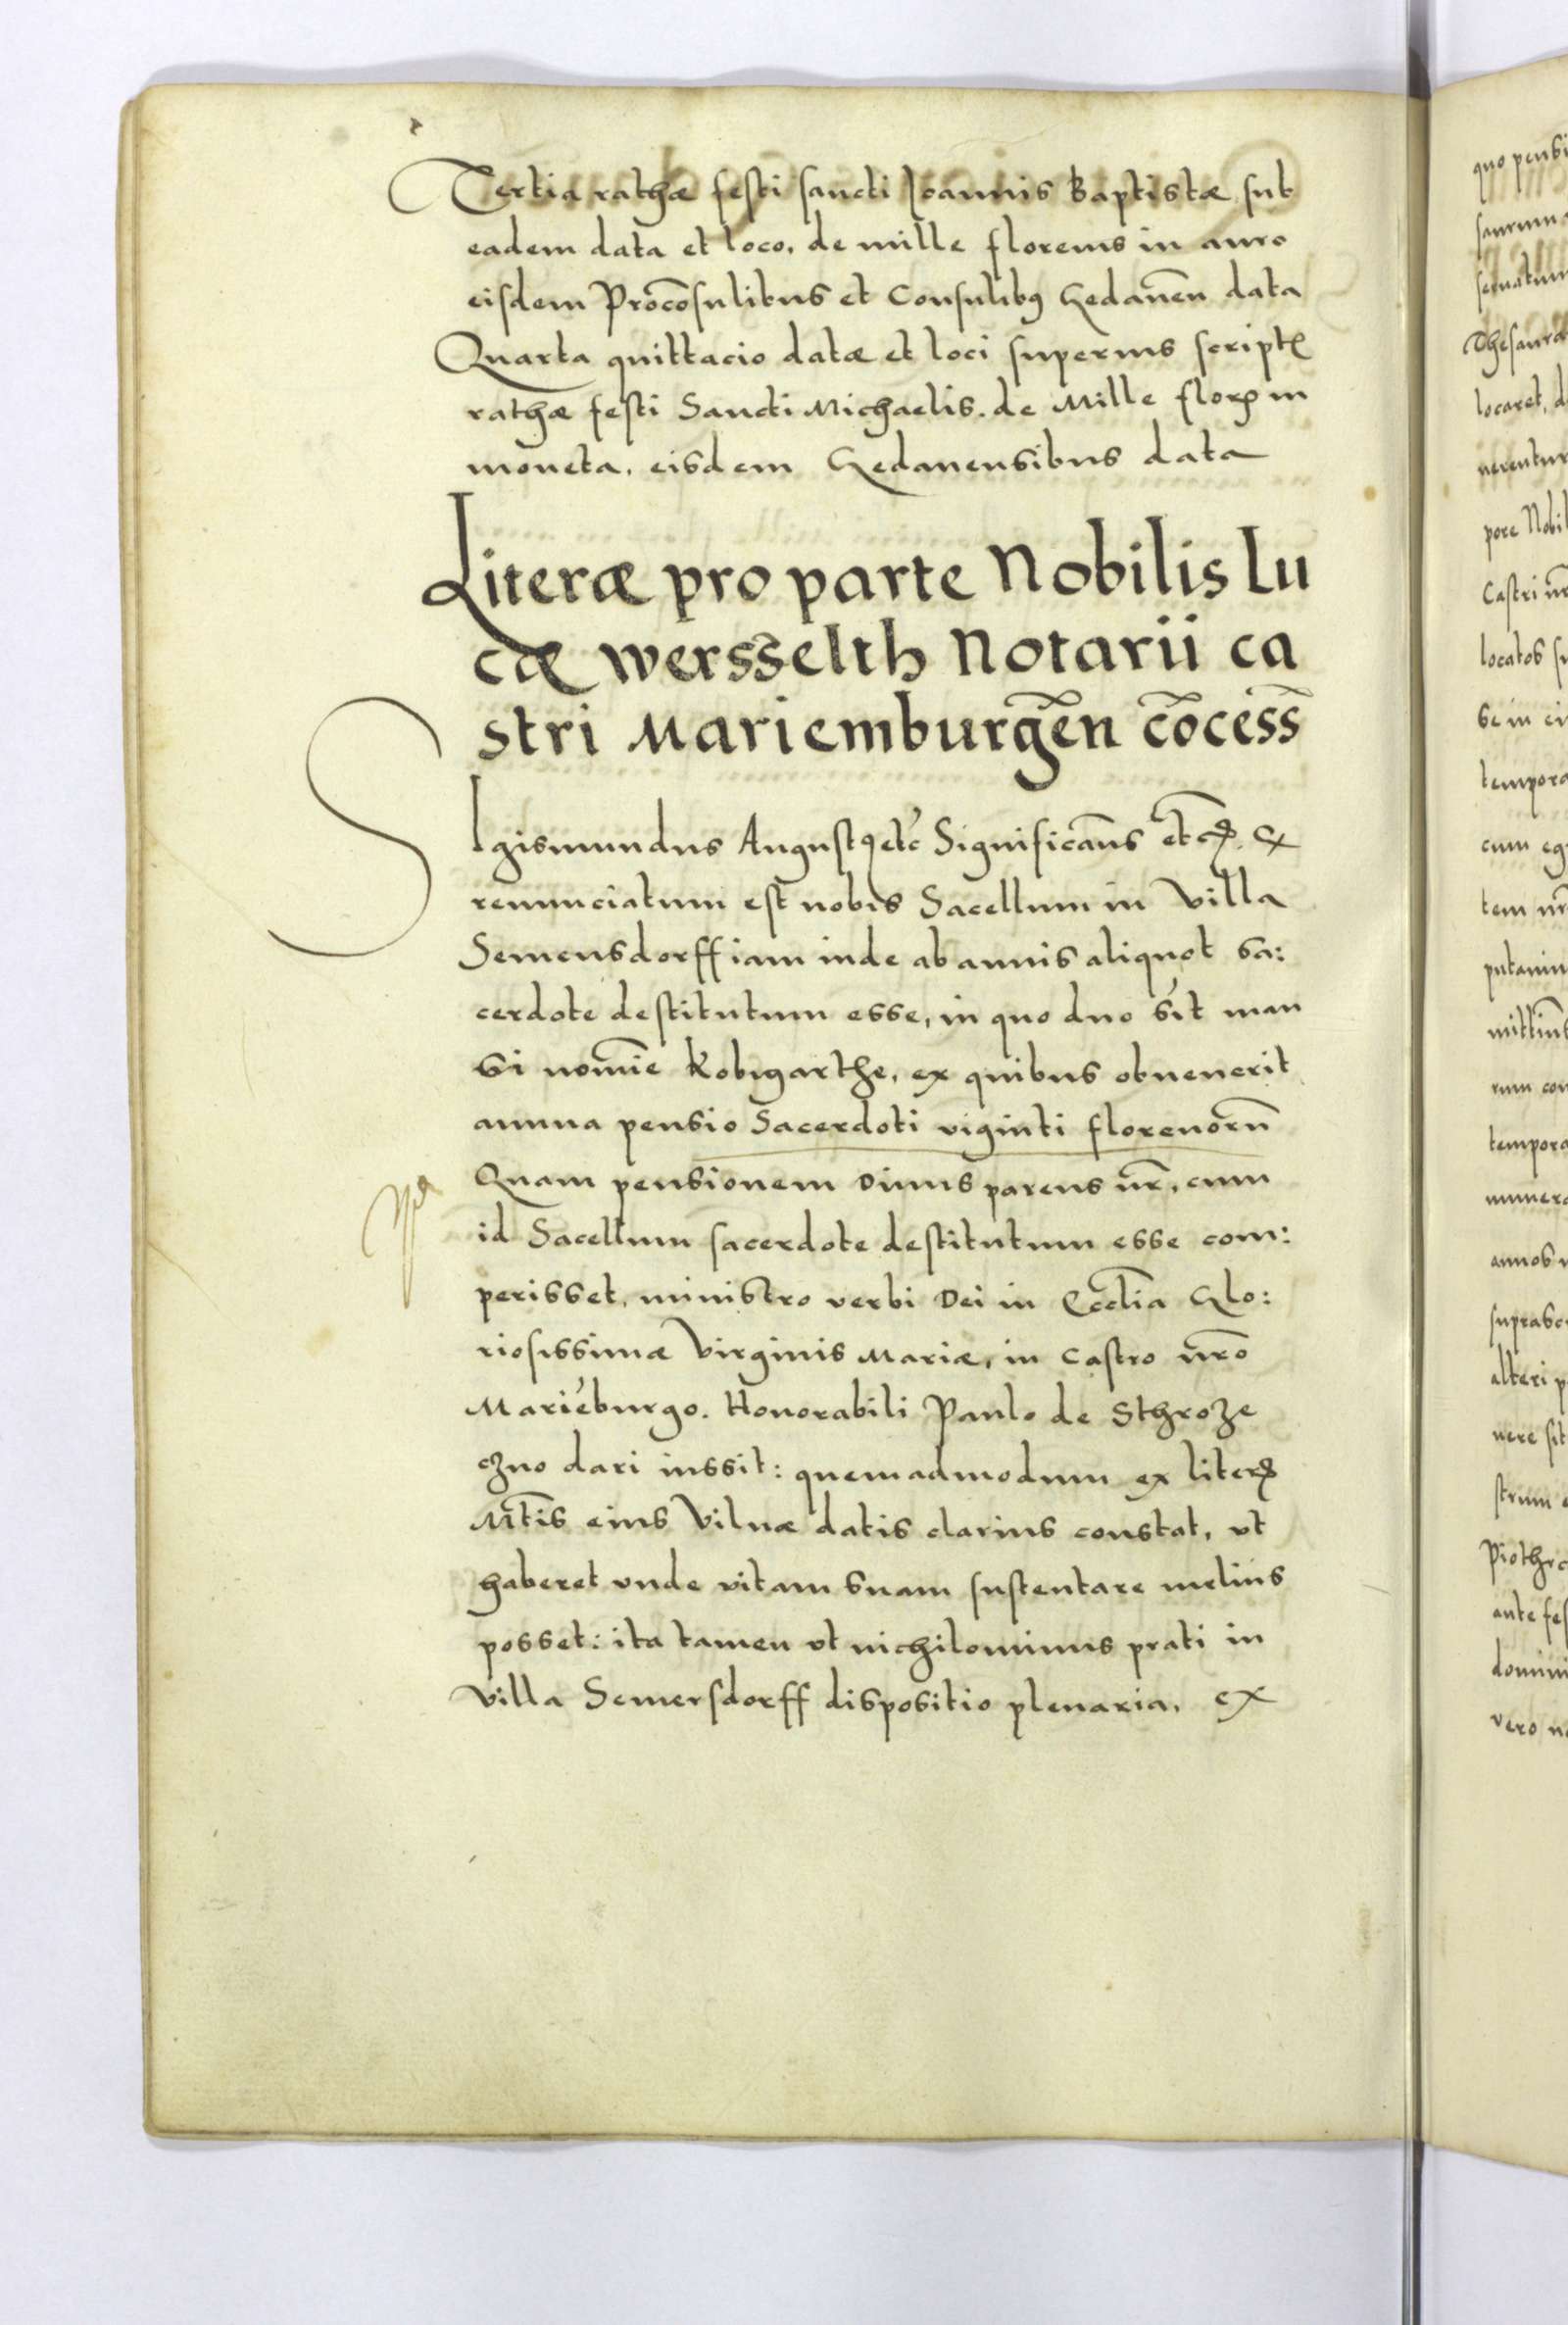 Tertia rathæ festi sancti Ioannis Baptistæ sub
eadem data et loco, de mille florenis in auro
eisdem Procõsulibus et Consulibꝰ Gedanẽn data
Quarta quittacio datæ et loci superius script̃
rathæ festi Sancti Michaelis. de Mille floꝝ in
moneta, eisdem Gedanensibus data
Literæ pro parte Nobilis Lu
cæ Wersselth Notarii ca
stri Mariemburgẽn cõcess̃
SIgismundus Augustꝰ etc̃ Significãus etcꝭ. Ex
renunciatum est nobis Sacellum in Villa
Semensdorff iam inde ab annis aliquot sa:
cerdote destitutum esse, in quo duo sĩt man
si nomĩe Kobigarthe, ex quibus obuenerit
annua pensio Sacerdoti viginti florenorũ
Quam pensionem Diuus parens nr̃, cum
id Sacellum sacerdote destitutum esse com:
perisset, ministro verbi Dei in Ecclĩa Glo:
riosissimæ Virginis Mariæ, in Castro nr̃o
Mariẽburgo. Honorabili Paulo de Sthroze
czno dari iussit: quemadmodum ex literꝭ
Mt̃is eius Vilnæ datis clarius constat, vt
haberet vnde vitam suam sustentare melius
posset: ita tamen vt nichilominus prati in
Villa Semersdorff dispositio plenaria, ex
quo pensi
locaret, d
pore Nobil
Castri nr̃
locatos su
tempora
tempora
annos
alteri p
nere sit
strum
Piothrc
ante fes
domini
vero n